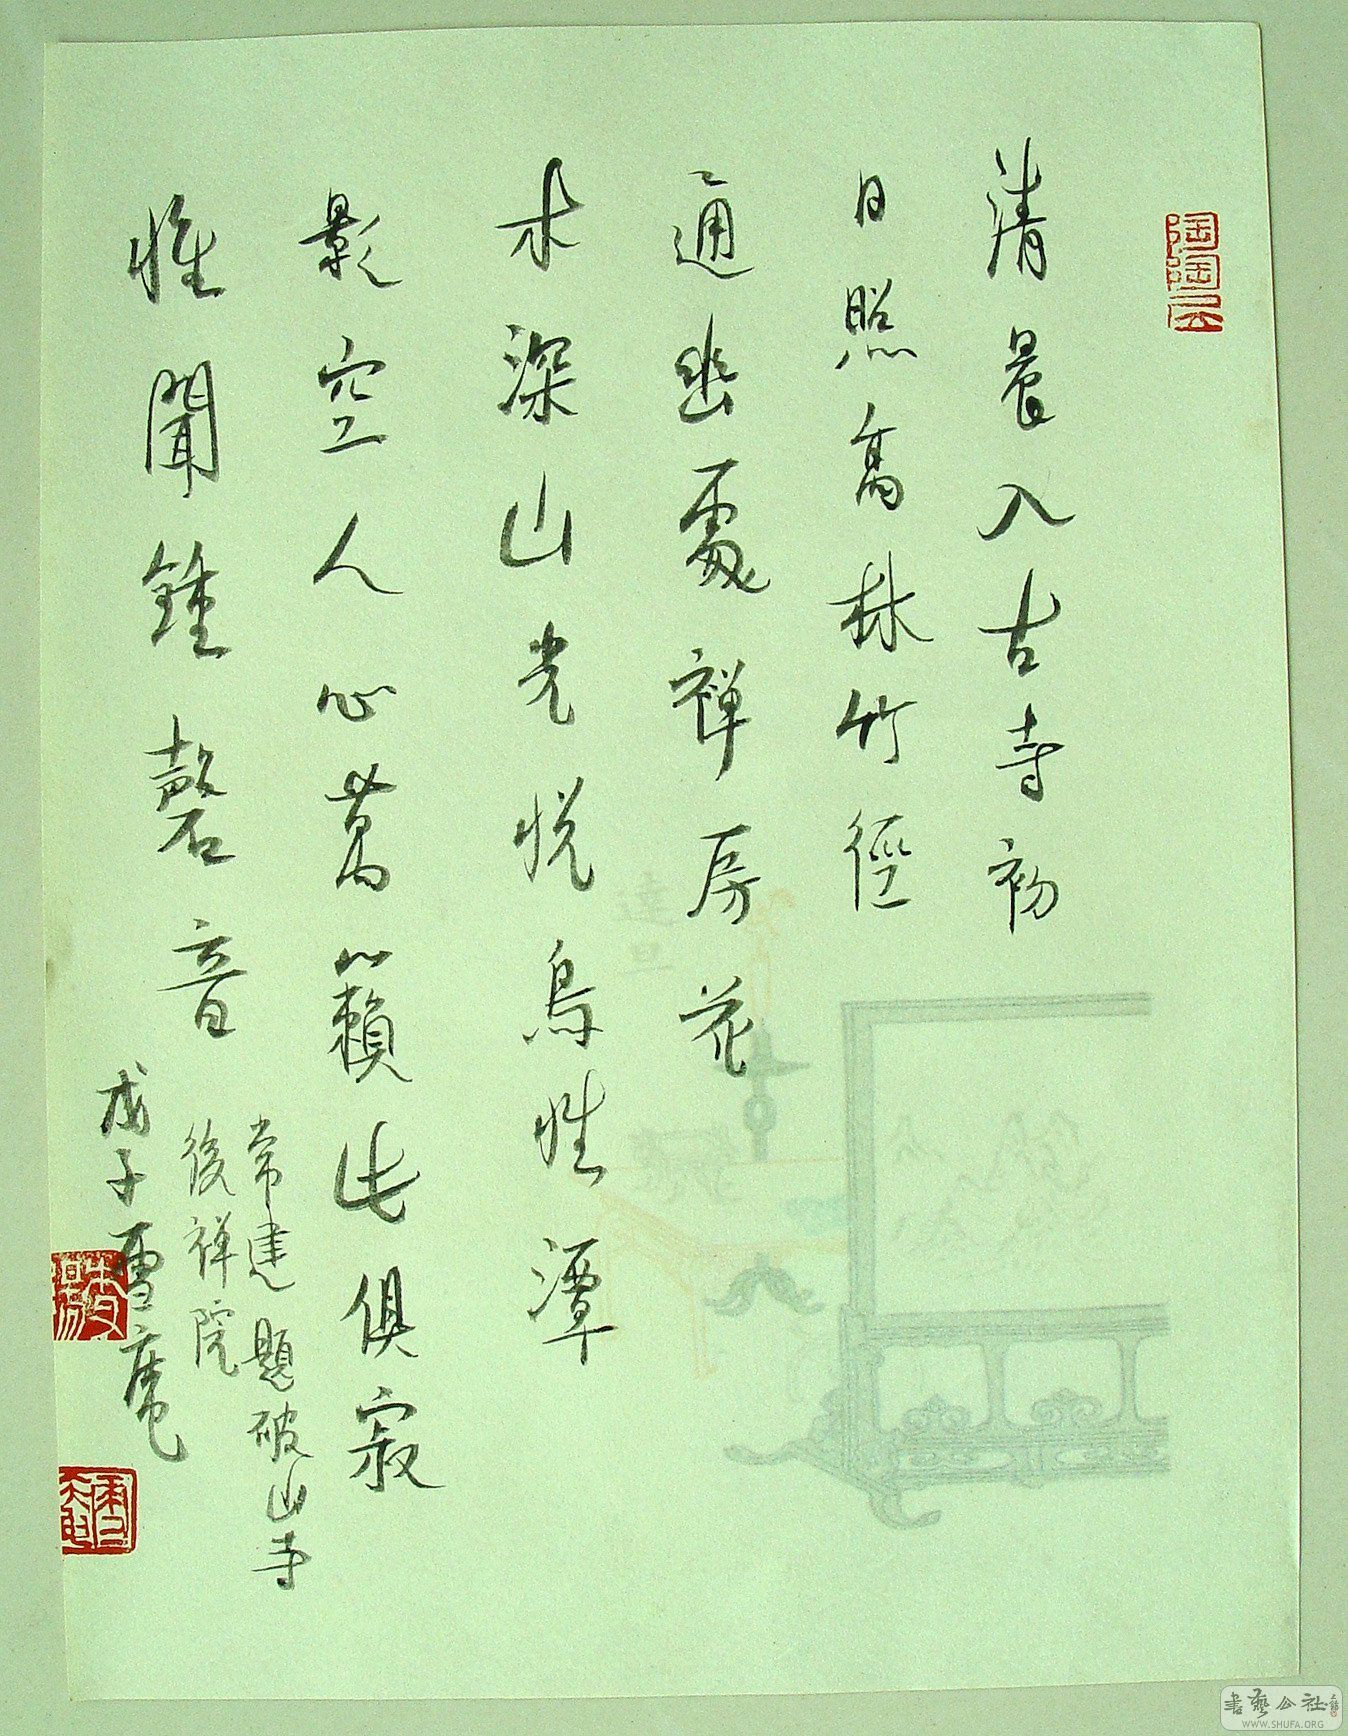 陶陶
清晨入古寺初
日照高林竹徑
通幽處禅房花
木深山光悦鳥性潭
影空人心萬籟此俱寂
惟聞鍾磬音
常建題破山寺
後禅院
戊子雪庵
書藝公社
WWW.SHUFA.ORG